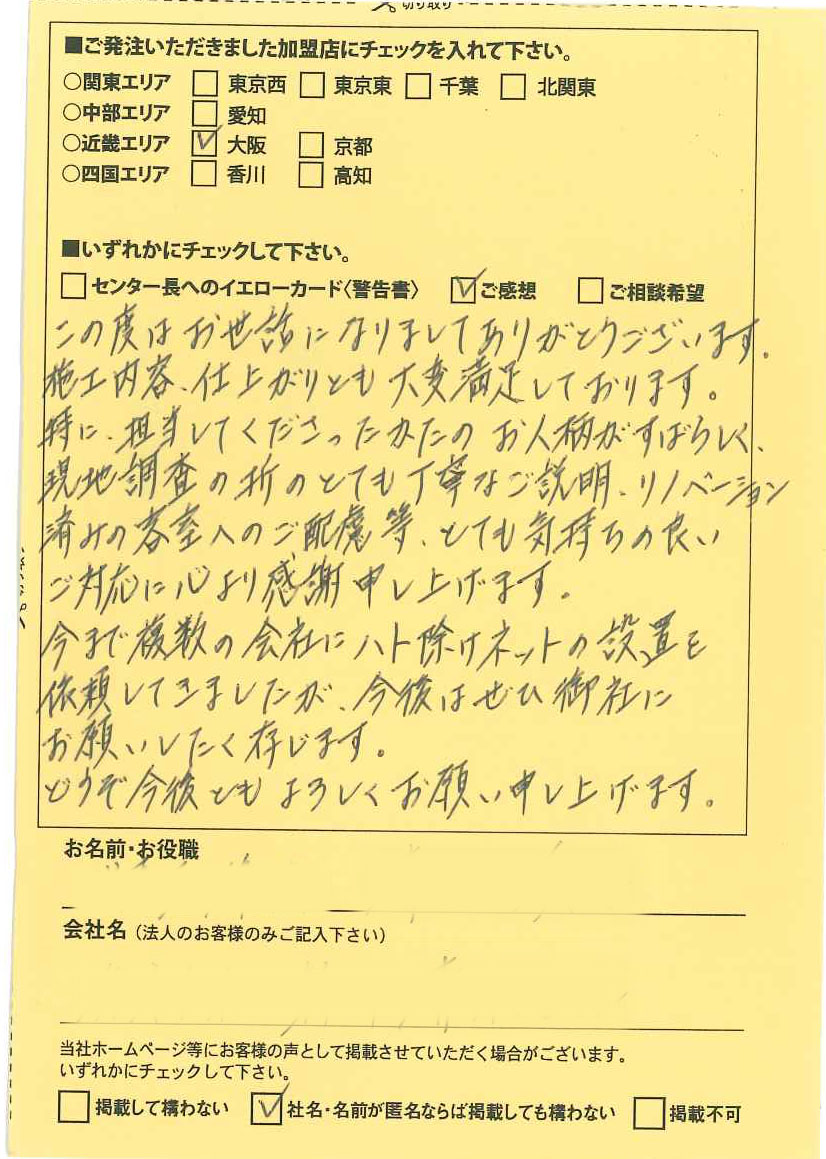 切り取り
■ご発注いただきました加盟店にチェックを入れて下さい。
○関東エリア □ 東京西 □ 東京東 □ 千葉 □ 北関東
○中部エリア □ 愛知
○近畿エリア ☑ 大阪 □ 京都
○四国エリア □ 香川 □ 高知
■いずれかにチェックして下さい。
□ センター長へのイエローカード〈警告書〉 ☑ ご感想 □ ご相談希望
この度はお世話になりましてありがとうございます。
施工内容、仕上がりとも大変満足しております。
特に、担当してくださったかたのお人柄がすばらしく、
現地調査の折のとても丁寧なご説明、リノベーション
済みの客室へのご配慮等、とても気持ちの良い
ご対応に心より感謝申し上げます。
今まで複数の会社にハト除けネットの設置を
依頼してきましたが、今後はぜひ御社に
お願いしたく存じます。
どうぞ今後ともよろしくお願い申し上げます。
お名前・お役職
会社名（法人のお客様のみご記入下さい）
当社ホームページ等にお客様の声として掲載させていただく場合がございます。
いずれかにチェックして下さい。
□ 掲載して構わない ☑ 社名・名前が匿名ならば掲載しても構わない □ 掲載不可